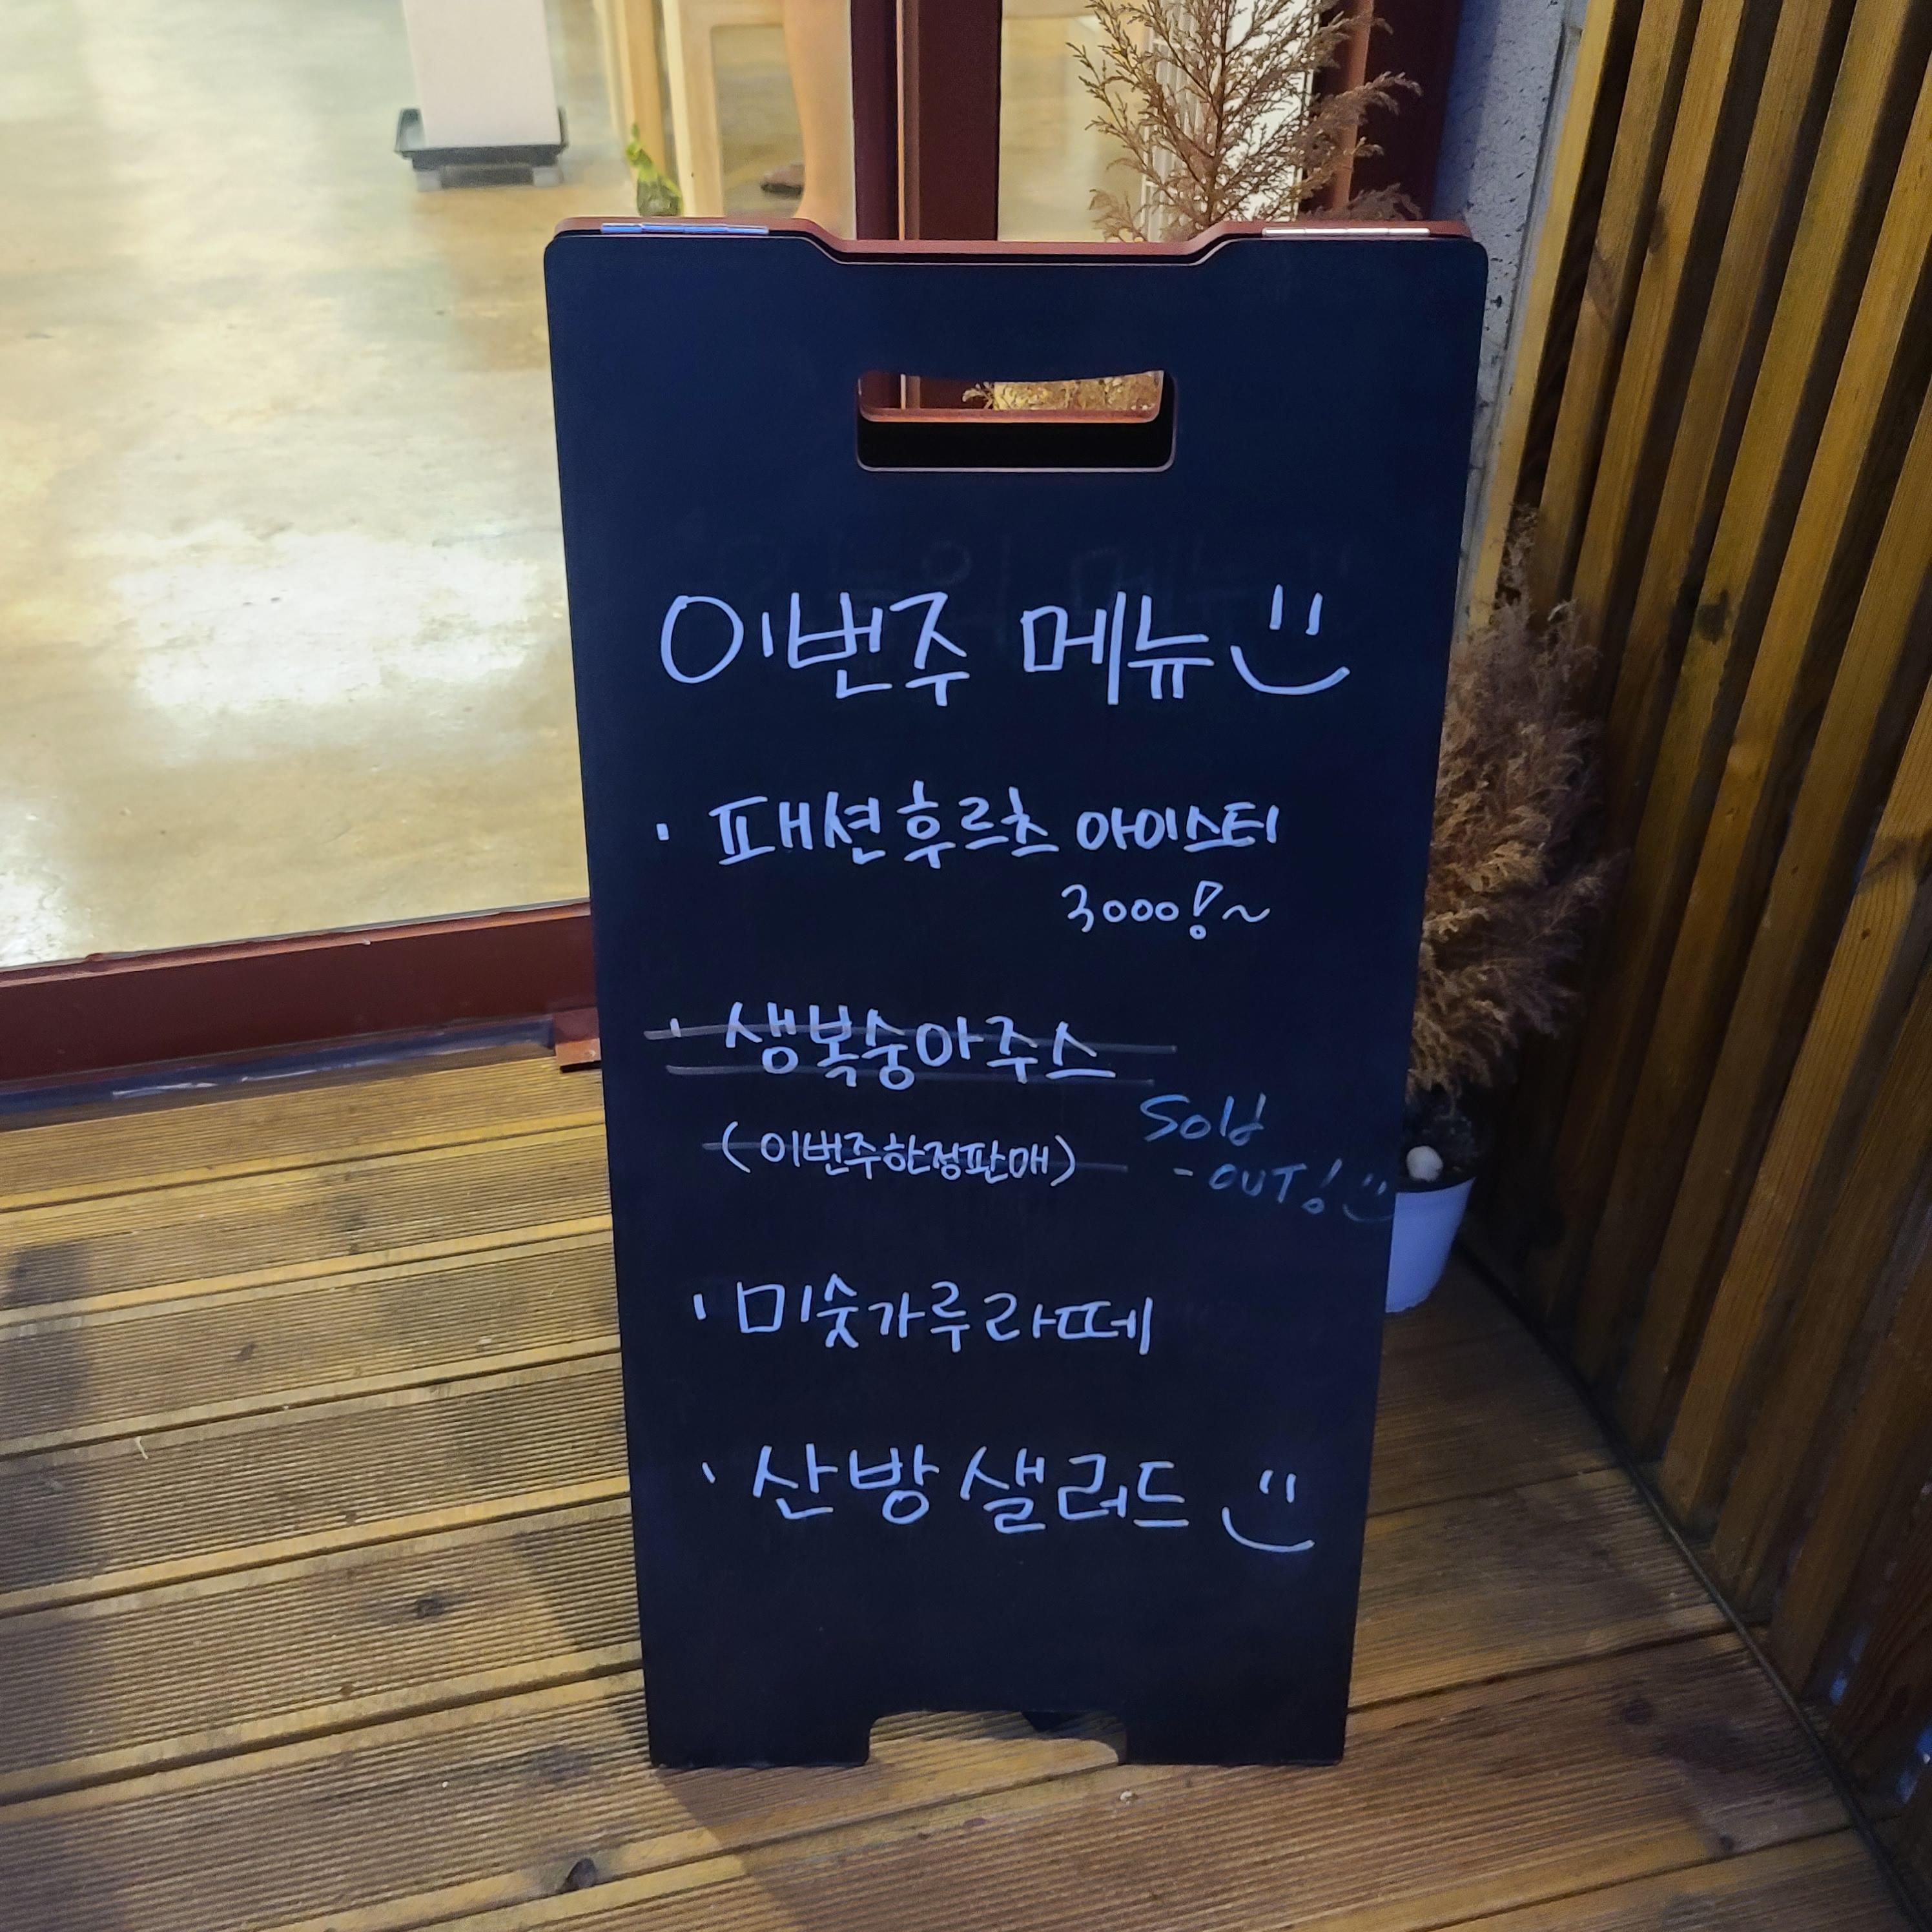 이번주 메뉴
· 패션후르츠 아이스티
3000!~
· 생복숭아주스
(이번주한정판매)
Sold
-OUT!
· 미숫가루라떼
· 산방샐러드